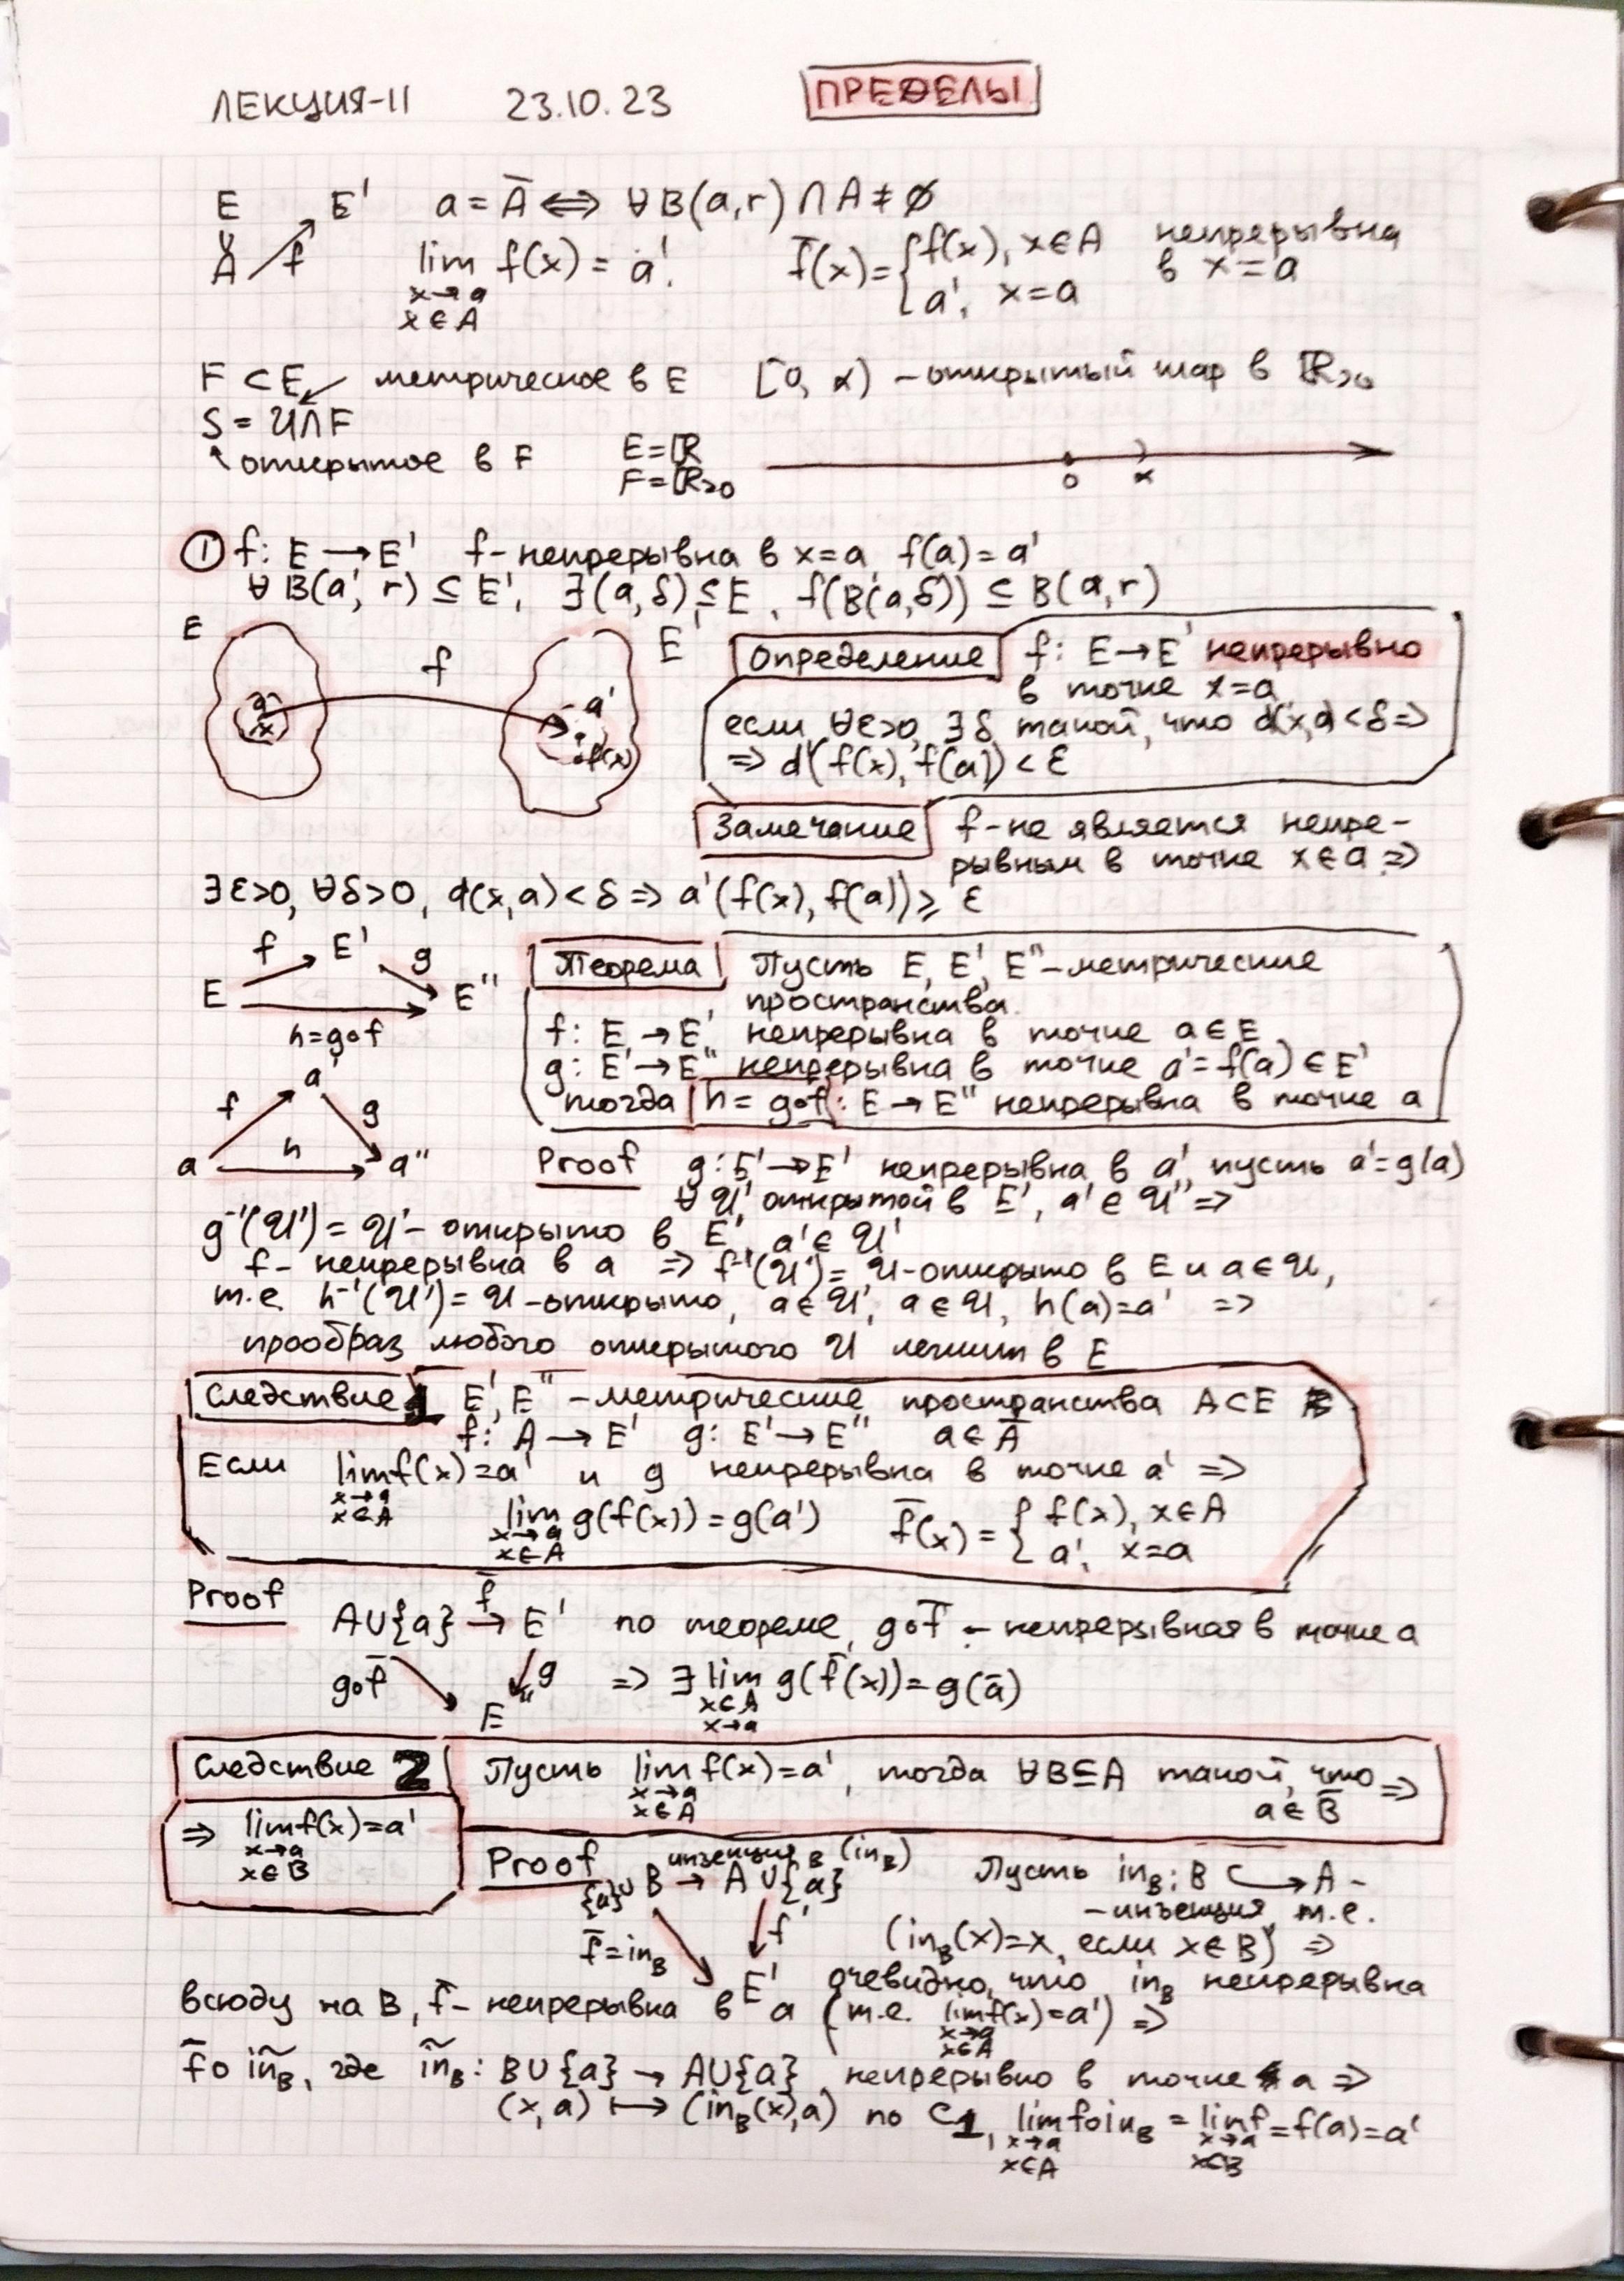 ЛЕКЦИЯ-11 23.10.23 ПРЕДЕЛЫ
E E' a = A̅ ⟺ ∀B(a,r)∩A≠∅
A f lim f(x) = a'. f̅(x)={f(x), x∈A непрерывна
x→a a', x=a в x=a
x∈A
F ⊂ E метрическое в E [0, α) - открытый шар в ℝ>0
S = U∩F
открытое в F E=ℝ
F=ℝ>0 0 α
① f: E → E' f-непрерывна в x=a, f(a)=a'
∀ B(a', r) ⊆ E', ∃(a,δ)⊆E, f(B(a,δ)) ⊆ B(a,r)
E f E' Определение f: E→E' непрерывно
в точке x=a
a x a' f(x) если ∀ε>0, ∃δ такой, что d(x,a)<δ=>
=> d'(f(x), f(a))<ε
Замечание f-не является непре-
рывным в точке x∈a =>
∃ε>0, ∀δ>0, d(x,a)<δ => a'(f(x), f(a))⩾ ε
f E' g Теорема Пусть E, E', E''-метрические
E E'' пространства.
h=g∘f f: E → E' непрерывна в точке a∈E
g: E'→E'' непрерывна в точке a'=f(a)∈E'
тогда h = g∘f: E→E'' непрерывна в точке a
f a' g
a h a'' Proof g:E'→E' непрерывна в a', пусть a'=g(a)
∀ U' открытой в E', a'∈U'' =>
g⁻¹(U')=U'- открыто в E', a'∈U'
f- непрерывна в a => f⁻¹(U')= U-открыто в E и a∈U,
т.е. h⁻¹(U')= U-открыто, a∈U', a∈U, h(a)=a' =>
прообраз любого открытого U лежит в E
Следствие 1 E', E''-метрические пространства A⊂E
f: A → E' g: E'→E'' a∈A̅
Если lim f(x)=a' и g непрерывна в точке a' =>
x→a
x∈A
lim g(f(x))=g(a') f̅(x) = { f(x), x∈A
x→a a', x=a
x∈A
Proof A∪{a} f̅→ E' по теореме, g∘f̅ - непрерывная в точке a
g∘f̅ g => ∃ lim g(f̅(x))=g(a̅)
E'' x∈A
x→a
Следствие 2 Пусть lim f(x)=a', тогда ∀B⊆A такой, что =>
x→a
x∈A a∈B̅
=> lim f(x)=a'
x→a
x∈B
Proof инъекция B (in_B) Пусть in_B: B ↪ A -
{a}∪B → A∪{a} -инъекция, т.е.
f̅=in_B f' (in_B(x)=x, если x∈B) =>
E' очевидно, что in_B непрерывна
всюду на B, f̅- непрерывна в a (т.е. lim f(x)=a') =>
x→a
x∈A
f̅∘ĩn_B, где ĩn_B: B∪{a} → A∪{a}, непрерывно в точке a =>
(x,a) ↦ (in_B(x),a) по C1, lim f∘in_B = lim f = f(a)=a'
x→a x→a
x∈A x∈B